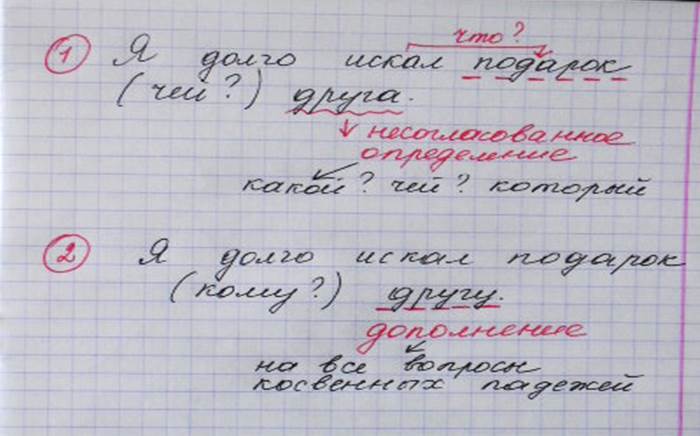 что?
1 Я долго искал подарок
(чей?) друга.
несогласованное
определение
какой? чей? который
2 Я долго искал подарок
(кому?) другу.
дополнение
на все вопросы
косвенных падежей